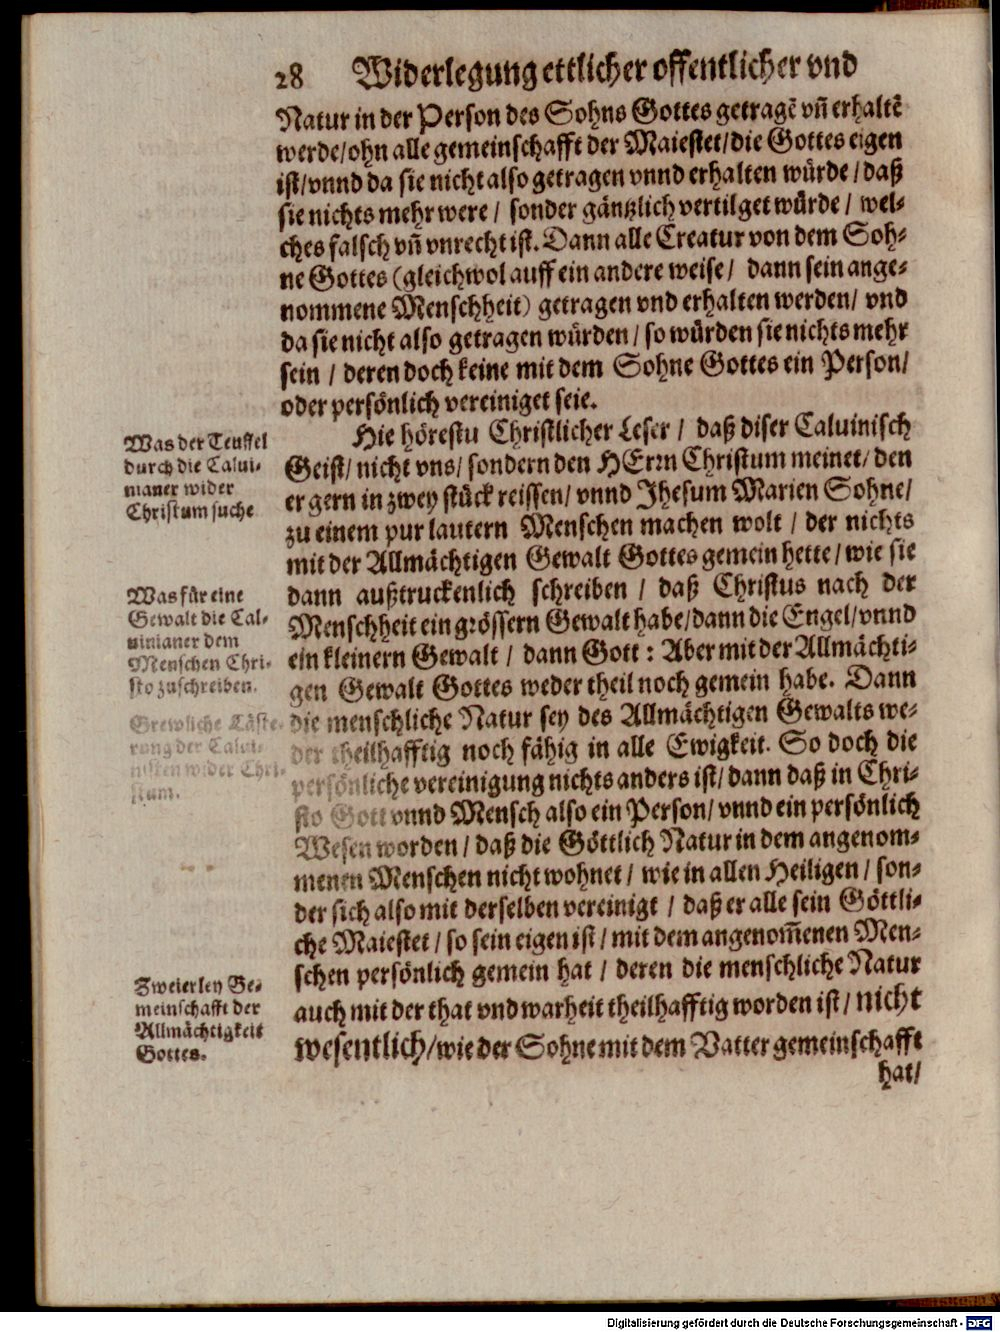 28 Widerlegung ettlicher offentlicher vnd
Natur in der Person des Sohns Gottes getragē vñ erhaltē
werde/ohn alle gemeinschafft der Maiestet/die Gottes eigen
ist/vnnd da sie nicht also getragen vnnd erhalten würde/daß
sie nichts mehr were/ sonder gäntzlich vertilget würde/ wel-
ches falsch vñ vnrecht ist. Dann alle Creatur von dem Soh-
ne Gottes (gleichwol auff ein andere weise/ dann sein ange-
nommene Menschheit) getragen vnd erhalten werden/ vnd
da sie nicht also getragen würden/ so würden sie nichts mehr
sein/ deren doch keine mit dem Sohne Gottes ein Person/
oder persönlich vereiniget seie.
Was der Teuffel
durch die Calui-
nianer wider
Christum suche
Hie hörestu Christlicher Leser/ daß diser Caluinisch
Geist/ nicht vns/ sondern den HErrn Christum meinet/ den
er gern in zwey stück reissen/ vnnd Jhesum Marien Sohne/
zu einem pur lautern Menschen machen wolt/ der nichts
mit der Allmächtigen Gewalt Gottes gemein hette/ wie sie
Was für eine
Gewalt die Cal-
uinianer dem
Menschen Chri-
sto zuschreiben.
dann außtruckenlich schreiben/ daß Christus nach der
Menschheit ein grössern Gewalt habe/dann die Engel/vnnd
ein kleinern Gewalt/ dann Gott: Aber mit der Allmächti-
gen Gewalt Gottes weder theil noch gemein habe. Dann
Grewliche Läste-
rung der Calui-
nisten wider Chri-
stum.
die menschliche Natur sey des Allmächtigen Gewalts we-
der theilhafftig noch fähig in alle Ewigkeit. So doch die
persönliche vereinigung nichts anders ist/ dann daß in Chri-
sto Gott vnnd Mensch also ein Person/ vnnd ein persönlich
Wesen worden/ daß die Göttlich Natur in dem angenom-
menen Menschen nicht wohnet/ wie in allen Heiligen/ son-
der sich also mit derselben vereinigt/ daß er alle sein Göttli-
che Maiestet/ so sein eigen ist/ mit dem angenom̄enen Men-
Zweierley Ge-
meinschafft der
Allmächtigkeit
Gottes.
schen persönlich gemein hat/ deren die menschliche Natur
auch mit der that vnd warheit theilhafftig worden ist/ nicht
wesentlich/wie der Sohne mit dem Vatter gemeinschafft
hat/
Digitalisierung gefördert durch die Deutsche Forschungsgemeinschaft - DFG